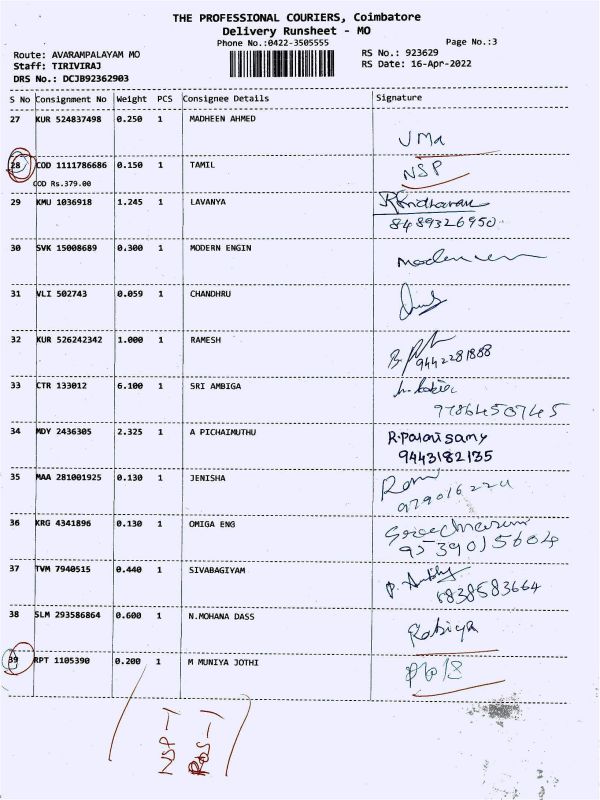 THE PROFESSIONAL COURIERS, Coimbatore
Delivery Runsheet - MO
Phone No.:0422-3505555
Page No.:3
Route: AVARAMPALAYAM MO
RS No.: 923629
Staff: TIRIVIRAJ
RS Date: 16-Apr-2022
DRS No.: DCJB92362903
S No Consignment No Weight PCS Consignee Details Signature
27 KUR 524837498 0.250 1 MADHEEN AHMED
UMa
28 COD 1111786686 0.150 1 TAMIL
NSP
COD Rs.379.00
29 KMU 1036918 1.245 1 LAVANYA
8489326950
30 SVK 15008689 0.300 1 MODERN ENGIN
31 VLI 502743 0.059 1 CHANDHRU
32 KUR 526242342 1.000 1 RAMESH
9442281888
33 CTR 133012 6.100 1 SRI AMBIGA
34 MDY 2436305 2.325 1 A PICHAIMUTHU
R.Palanisamy
9443182135
35 MAA 281001925 0.130 1 JENISHA
36 KRG 4341896 0.130 1 OMIGA ENG
9539015604
37 TVM 7940515 0.440 1 SIVABAGIYAM
38 SLM 293586864 0.600 1 N.MOHANA DASS
Rabiya
39 RPT 1105390 0.200 1 M MUNIYA JOTHI
NSP-1